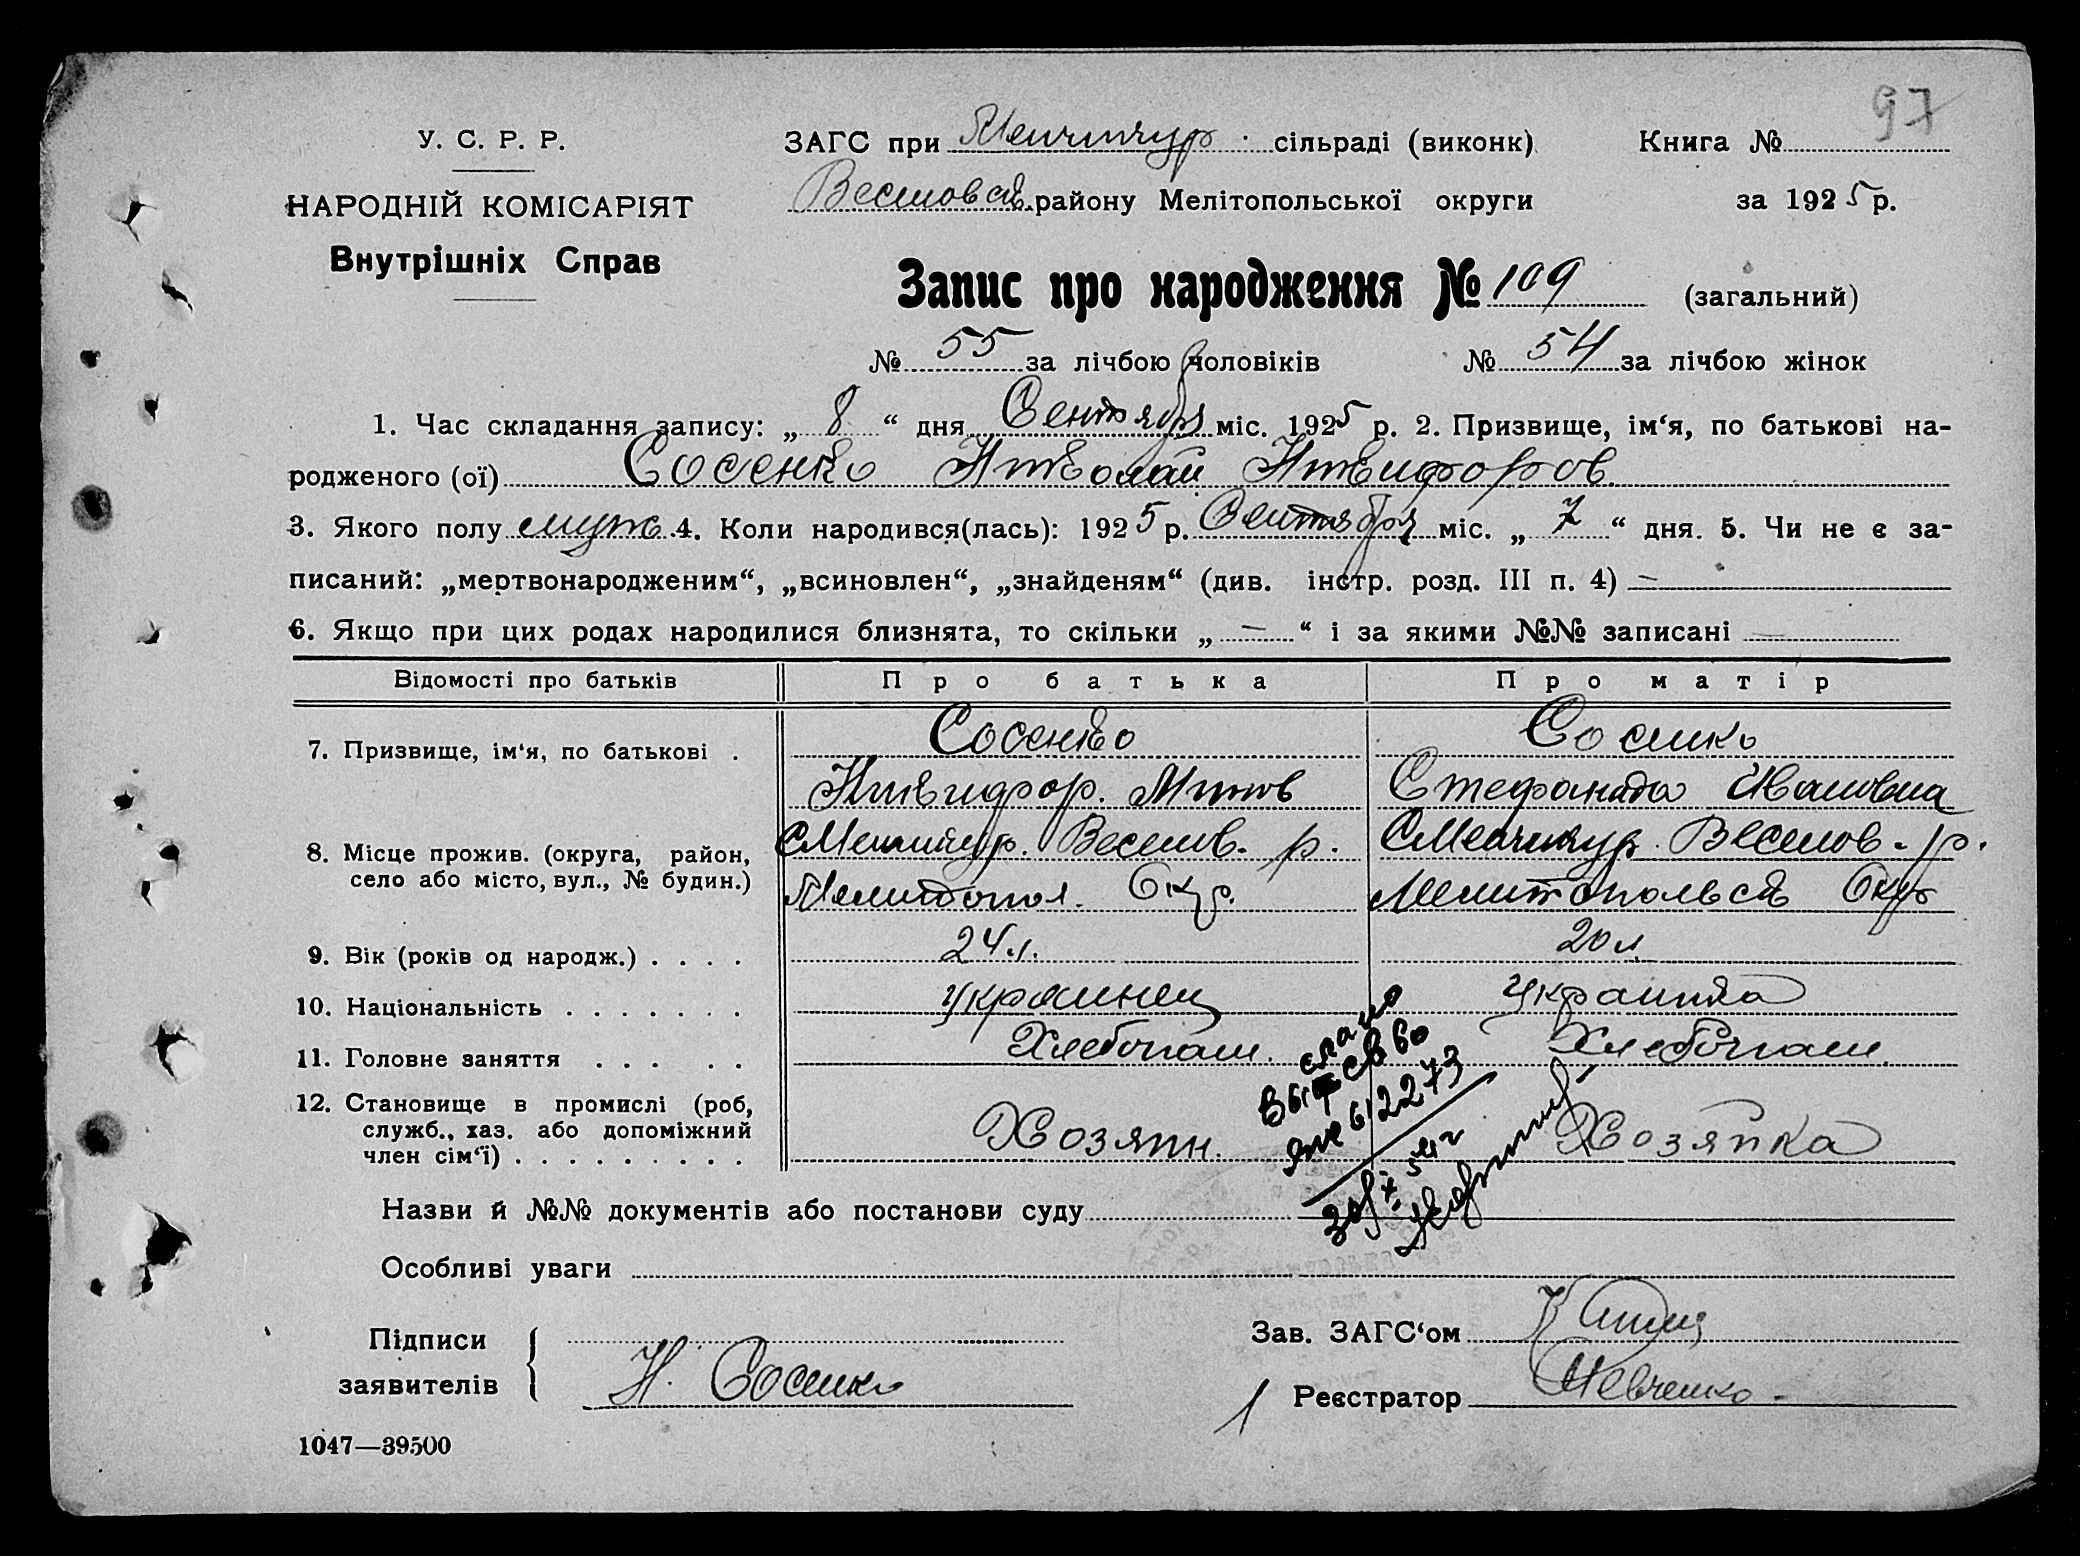 97
У. С. Р. Р.
ЗАГС при Менчикур. сільраді (виконк)
Книга №
НАРОДНІЙ КОМІСАРІЯТ
Веселовск. району Мелітопольської округи
за 1925 р.
Внутрішніх Справ
Запис про народження № 109 (загальний)
№ 55 за лічбою чоловіків № 54 за лічбою жінок
1. Час складання запису: „ 8 “ дня Сентября міс. 1925 р. 2. Призвище, ім‘я, по батькові на-
родженого (ої) Сосенко Николай Никифоров
3. Якого полу муж. 4. Коли народився(лась): 1925 р. Сентября міс. „ 7 “ дня. 5. Чи не є за-
писаний: „мертвонародженим“, „всиновлен“, „знайденям“ (див. інстр. розд. III п. 4) —
6. Якщо при цих родах народилися близнята, то скільки „ — “ і за якими №№ записані —
Відомості про батьків Про батька Про матір
7. Призвище, ім‘я, по батькові . Сосенко Сосенко
Никифор. Стефанида Ивановна
8. Місце прожив. (округа, район, село або місто, вул., № будин.) С Менчикур. Веселов. р. С Менчикур. Веселов. р.
Мелитопол. Окр. Мелитопольск Окр
9. Вік (років од народж.) . . . . 24 л. 20 л.
10. Національність . . . . . . . украинец украинка
11. Головне заняття . . . . . Хлебопаш. Хлебопаш.
12. Становище в промислі (роб, служб., хаз. або допоміжний член сім‘ї) . . . . . . . . . Хозяин. Хозяйка
Назви й №№ документів або постанови суду
Особливі уваги
Підписи заявителів
Н. Сосенко
Зав. ЗАГС‘ом
Реєстратор Шевченко
1047—39500